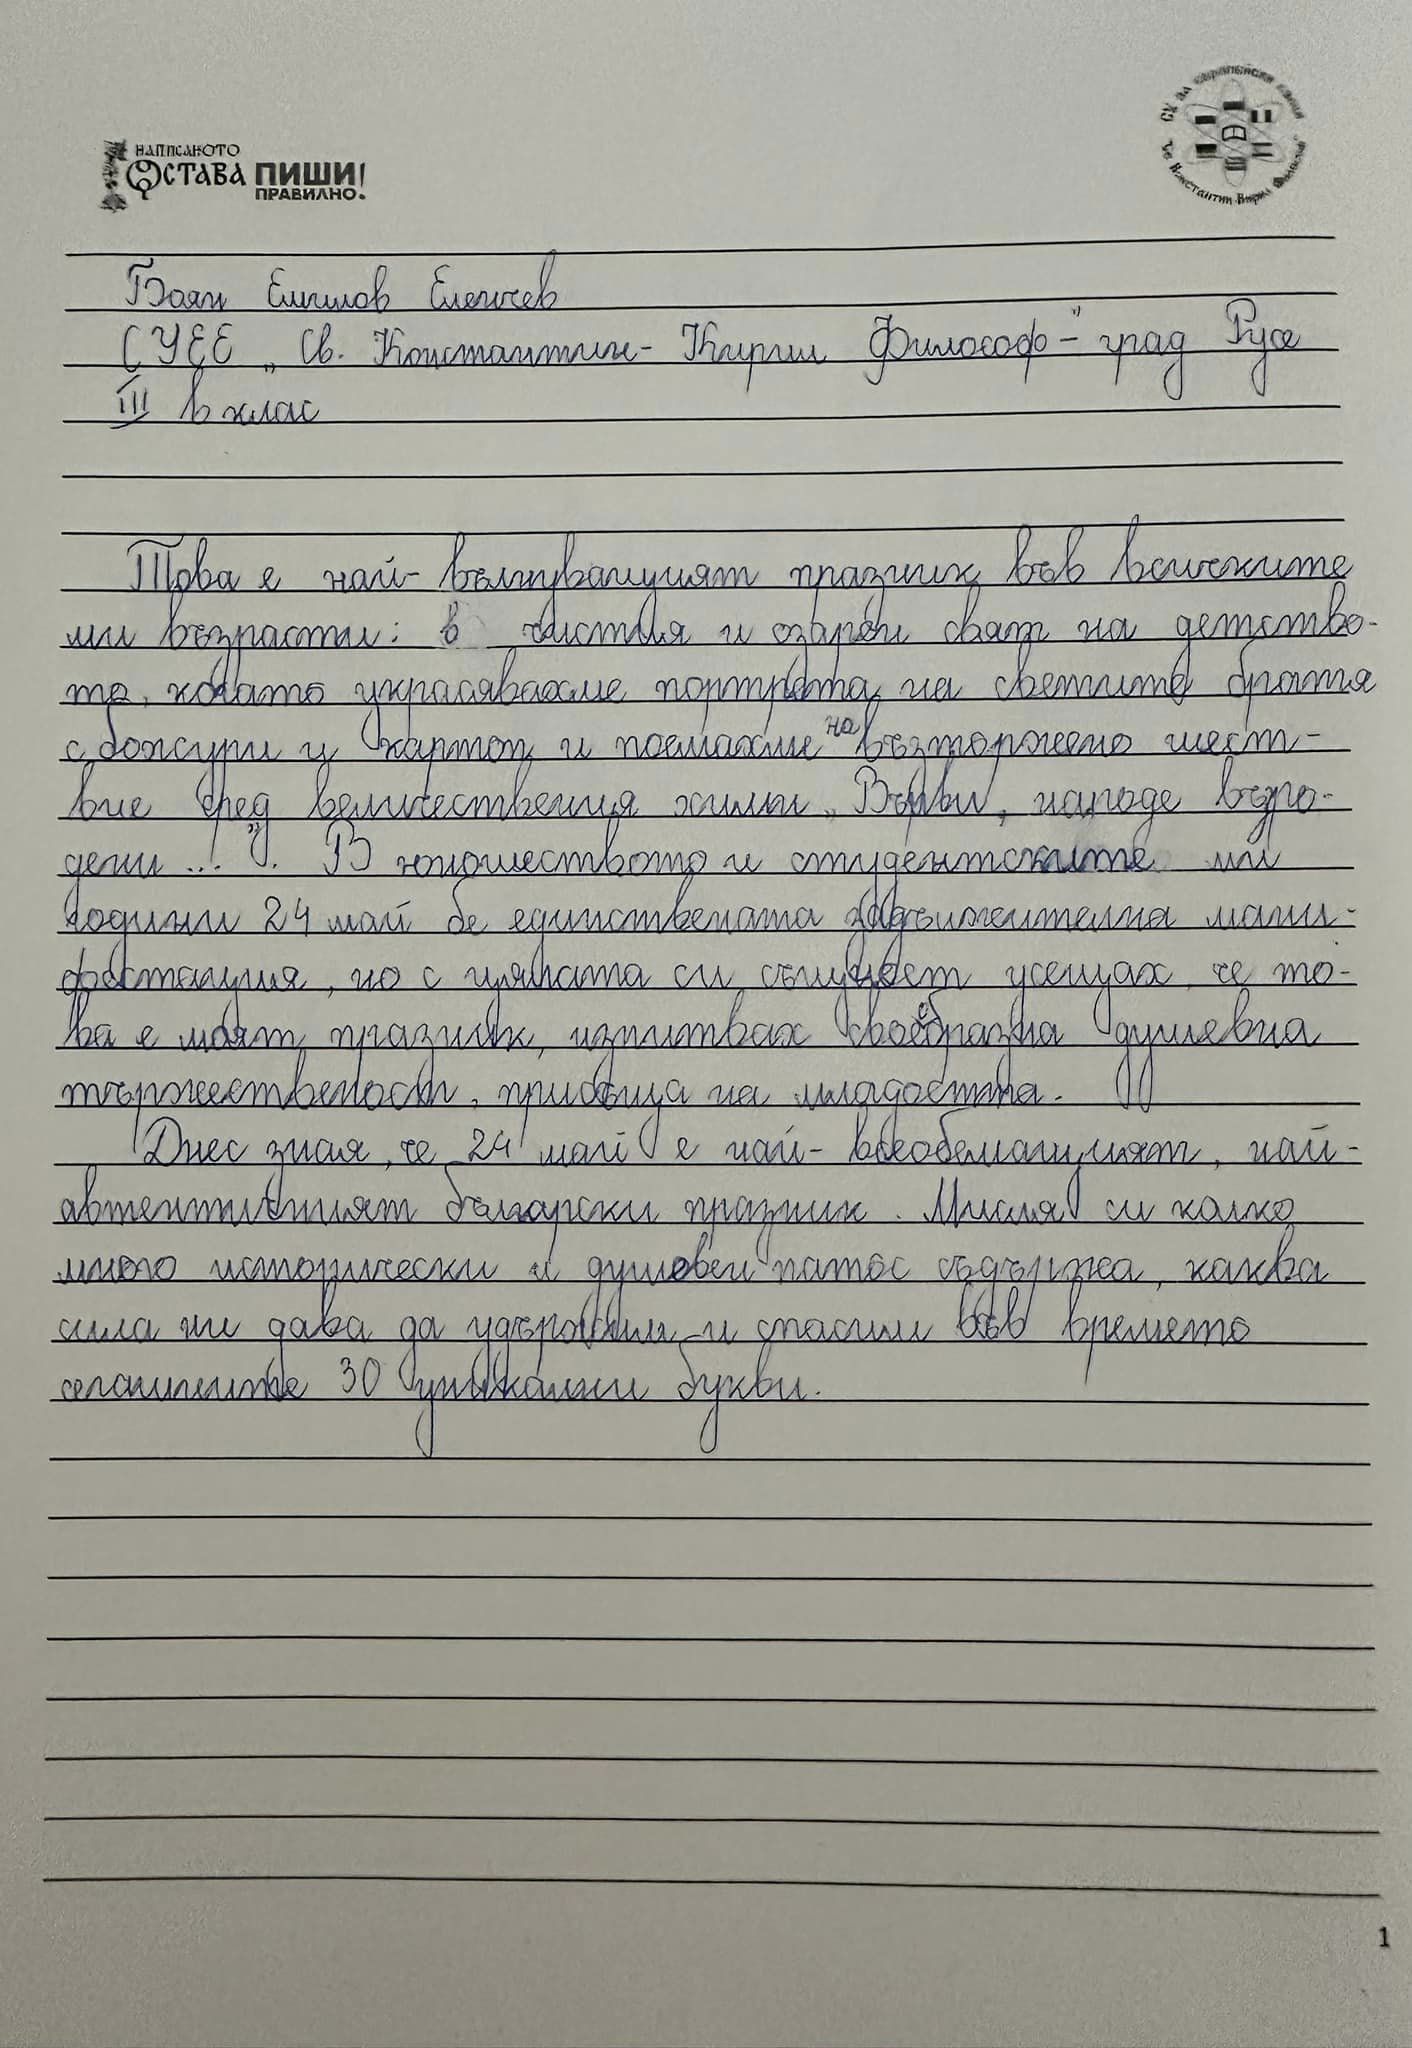 НАПИСАНОТО
ОСТАВА ПИШИ
ПРАВИЛНО!
СУ за европейски езици
"Св. Константин-Кирил Философ"
Боян Емилов Еленчев
СУЕЕ „Св. Константин- Кирил Философ-" град Русе
III в клас
Това е най- вълнуващият празник във всичките
ми възрасти: в чистия и озарен свят на детство-
то, когато украсявахме портрета на светите братя
с божури и картон и поемахме на възторжено шест-
вие сред величествения химн „Върви, народе възро-
дени ...". В юношеството и студентските ми
години 24 май бе единствената задължителна мани-
фестация, но с цялата си същност усещах, че то-
ва е моят празник, изпитвах своеобразна душевна
тържественост, присъща на младостта.
Днес зная, че 24 май е най- всеобемащият, най-
автентичният български празник. Мисля си колко
много исторически и душовен патос съдържа, каква
сила ни дава да удържим и спасим във времето
сепашните 30 уникални букви.
1